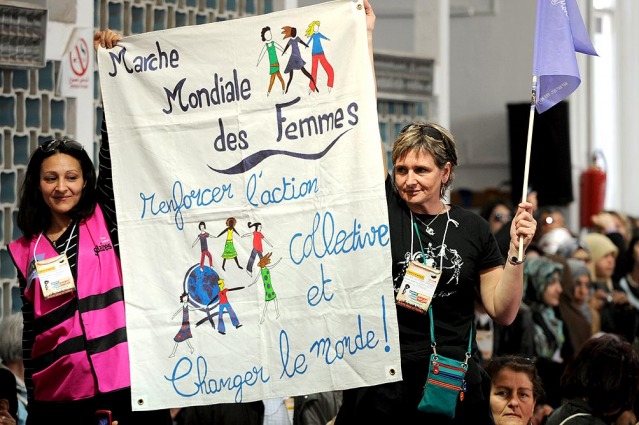 Marche
Mondiale
des Femmes
renforcer l'action
collective
et
Changer le monde !